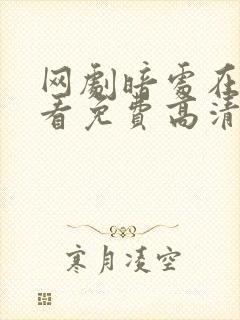 网剧暗处在
看免费高清
寒月凌空